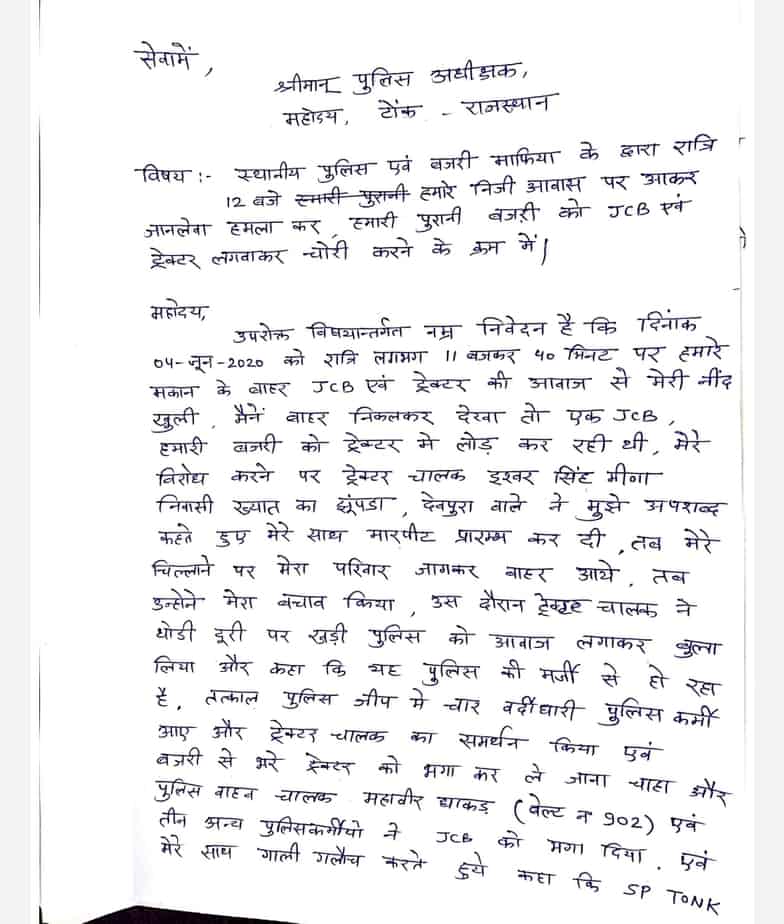 सेवामें,
श्रीमान् पुलिस अधीक्षक,
महोदय, टोंक - राजस्थान
विषय :- स्थानीय पुलिस एवं बजरी माफिया के द्वारा रात्रि
12 बजे हमारी पुरानी हमारे निजी आवास पर आकर
जानलेवा हमला कर, हमारी पुरानी बजरी को JCB एवं
ट्रेक्टर लगवाकर चोरी करने के क्रम में।
महोदय,
उपरोक्त विषयान्तर्गत नम्र निवेदन है कि दिनांक
04-जून-2020 को रात्रि लगभग 11 बजकर 40 मिनट पर हमारे
मकान के बाहर JCB एवं ट्रेक्टर की आवाज से मेरी नींद
खुली, मैनें बाहर निकलकर देखा तो एक JCB,
हमारी बजरी को ट्रेक्टर मे लोड़ कर रही थी, मेरे
विरोध करने पर ट्रेक्टर चालक इश्वर सिंह मीणा
निवासी ख्यात का झूंपडा, देवपुरा वाले ने मुझे अपशब्द
कहते हुए मेरे साथ मारपीट प्रारम्भ कर दी, तब मेरे
चिल्लाने पर मेरा परिवार जागकर बाहर आये, तब
उन्होने मेरा बचाव किया, उस दौरान चालक ने
थोडी दूरी पर खड़ी पुलिस को आवाज लगाकर बुला
लिया और कहा कि यह पुलिस की मर्जी से हो रहा
है, तत्काल पुलिस जीप मे चार वर्दीधारी पुलिस कर्मी
आए और ट्रेक्टर चालक का समर्थन किया एवं
बजरी से भरे ट्रेक्टर को भगा कर ले जाना चाहा और
पुलिस वाहन चालक महावीर धाकड़ (बेल्ट न 902) एवं
तीन अन्य पुलिसकर्मीयो ने JCB को भगा दिया, एवं
मेरे साथ गाली गलौच करते हुये कहा कि SP TONK